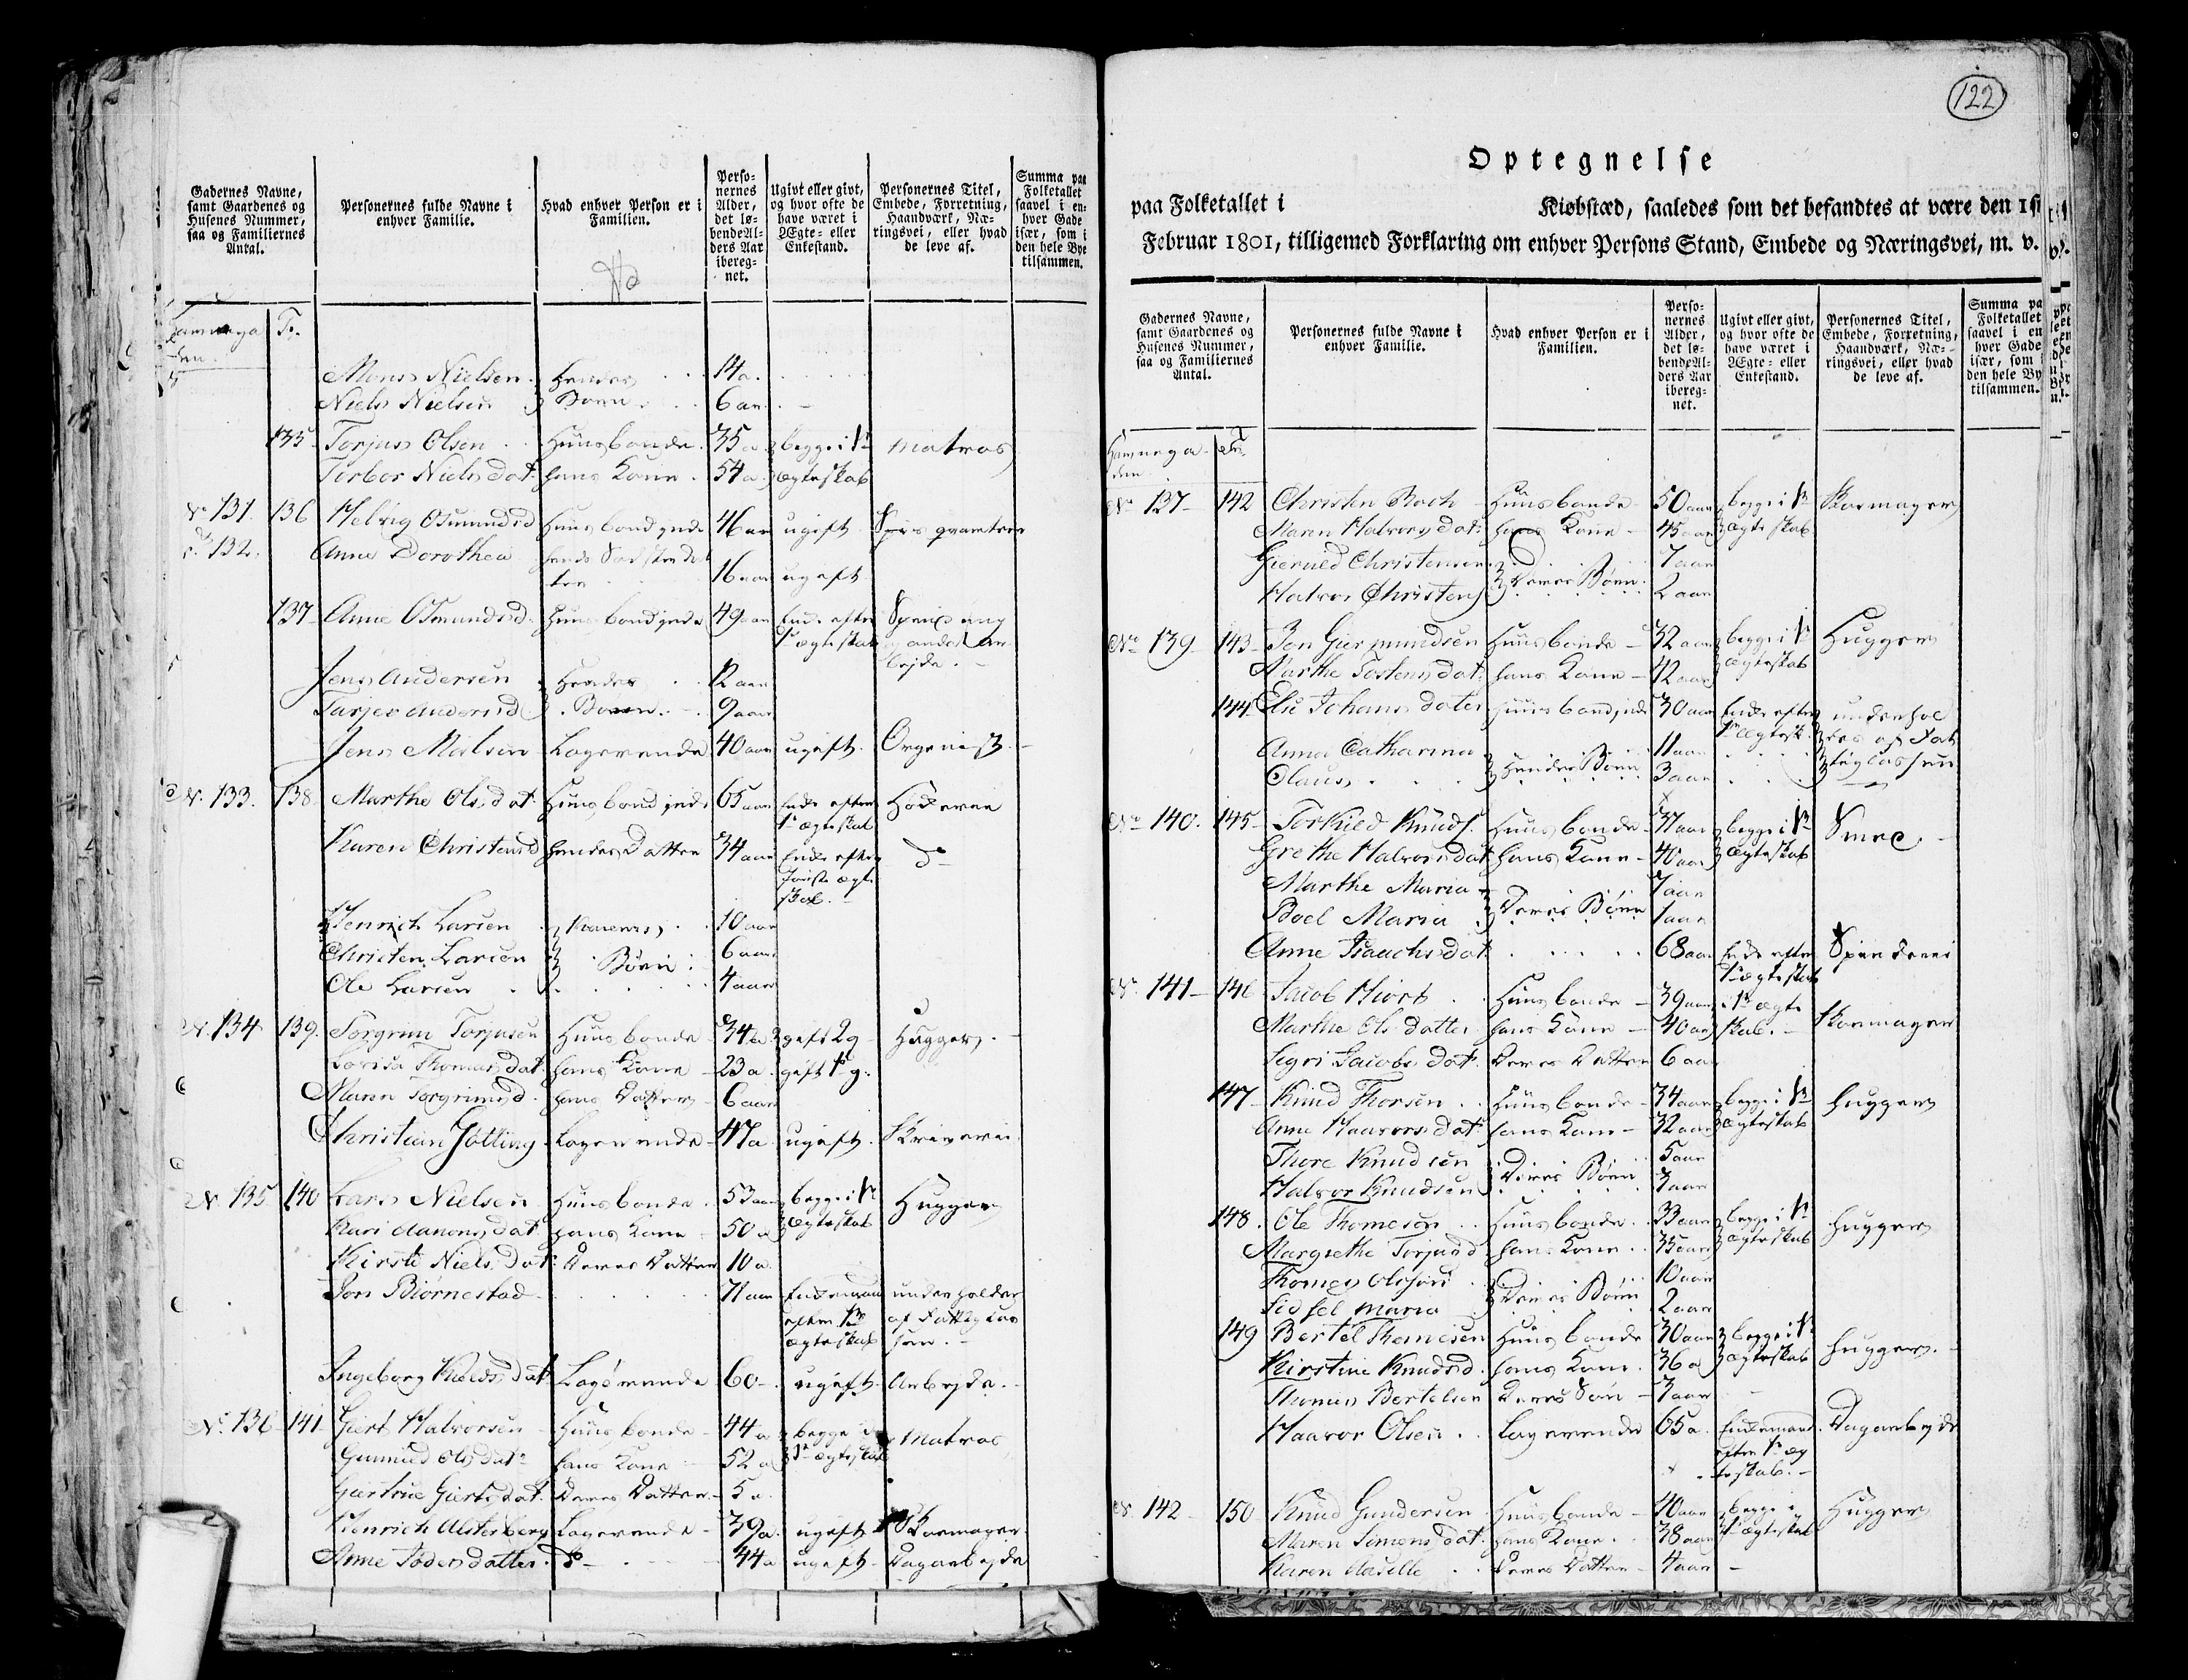 122
Gadernes Navne, samt Gaardenes og Husenes Nummer, saa og Familiernes Antal.
Personernes fulde Navne i enhver Familie.
Hvad enhver Person er i Familien.
Personernes Alder, det løbende Alders Aar iberegnet.
Ugivt eller givt, og hvor ofte de have været i Ægte- eller Enkestand.
Personernes Titel, Embede, Forretning, Haandværk, Næringsvei, eller hvad de leve af.
Summa paa Folketallet saavel i enhver Gade især, som i den hele Bye tilsammen.
Mons Nielsen hendes 14 a.
Niels Nielsen Børn 6 aar
135 Torjus Olsen Huusbonde 35 a begge i 1te Matros
Torbor Niels dat. hans Kone 54 a ægteskab
No 131. 136 Helvig Osmunds d Huusbondinde 46 aar ugift
132. Anne Dorothea 16 aar ugift
137 Anne Osmunds d. Huusbondinde 49 aar Enke efter 1te ægteskab
Jens Andersen hendes 12 aar
Tarjer Anders d Børn 9 aar
Jens Nielsen Logerende 40 aar ugift Organist
No. 133. 138. Marthe Ols dat Huusbondinde 65 aar Enke efter 1te ægteskab Høkerie
Karen Christens d hendes Datter 34 aar Enke efter første ægteskab do
Henrich Larsen Karens 10 aar
Christen Larsen Børn 6 aar
Ole Larsen 4 aar
No. 134 139. Torgrim Torjusen Huusbonde 34 a gift 2 g Hugger
Lovisa Thomas dat. hans Kone 23 a. gift 1te g.
Maren Torgrims d. hans Datter 6 aar
Christian Jølling Logerende 47 a. ugift Skriverie
No 135 140 Lars Nielsen Huusbonde 53 aar begge i 1te Hugger
Kari Aanons dat hans Kone 50 a ægteskab
Kirsti Niels dat Deres Datter 10 a.
Jon Biørnestad 71 aar Enkemand efter 1te ægteskab underholdes af Fattigcassen
Ingeborg Kields dat Logerende 60 ugift Arbejde
No. 136 141 Giert Halvorsen Huusbonde 44 a begge i Matros
Gunnild Ols dat hans Kone 52 a 1te ægteskab
Giertrue Gierts dat. Deres Datter 5 a.
Henrich Alsterberg Logerende 39 a. ugift Skomager
Anne Peders datter do 44 a ugift Dagarbejde
Optegnelse
paa Folketallet i Kiøbstæd, saaledes som det befandtes at være den 1ste
Februar 1801, tilligemed Forklaring om enhver Persons Stand, Embede og Næringsvei, m. v.
Gadernes Navne, samt Gaardenes og Husenes Nummer, saa og Familiernes Antal.
Personernes fulde Navne i enhver Familie.
Hvad enhver Person er i Familien.
Personernes Alder, det løbende Alders Aar iberegnet.
Ugivt eller givt, og hvor ofte de have været i Ægte- eller Enkestand.
Personernes Titel, Embede, Forretning, Haandværk, Næringsvei, eller hvad de leve af.
Summa paa Folketallet saavel i enhver Gade især, som i den hele By tilsammen.
No 137 142 Christen Roch Huusbonde 50 aar begge i 1te Skomager
Maren Halvors dat. hans Kone 45 aar ægteskab
Gierued Christensen 7 aar
Halvor Christens Deres Børn 2 aar
No 139 143 Jon Giermundsen Huusbonde 32 aar begge i 1te Hugger
Marthe Tostens dat. hans Kone 42 aar ægteskab
144 Else Johans dater Huusbondinde 30 aar Enke efter 1te ægtesk. underholdes af Fattigcassen
Anna Catharina 11 aar
Claus hendes Børn 3 aar
No 140. 145 Torkild Knuds. Huusbonde 37 aar begge i 1te Smed
Grethe Halvors dat hans Kone 40 aar ægteskab
Marthe Maria 7 aar
Boel Maria Deres Børn 1 aar
Anne Isaachs dat 68 aar Enke efter 1te ægteskab Spinderi
No. 141 146 Jacob Hiort Huusbonde 39 aar i 1te ægte
Marthe Ols datter hans Kone 40 aar skab. Skomager
Segri Jacobs dat. Deres Datter 6 aar
147 Knud Thorsen Huusbonde 34 aar begge i 1te Hugger
Anne Haavors dat. hans Kone 32 aar ægteskab
Thore Knudsen 5 aar
Halvor Knudsen Deres Børn 3 aar
148. Ole Thomesøn Huusbonde 33 aar begge i 1te Hugger
Margrethe Torjus d. hans Kone 35 aar ægteskab
Thomes Olssøn 10 aar
Sidsel Maria Deres Børn 2 aar
149 Bertel Thomesen Huusbonde 30 aar begge i 1te Hugger
Kirstine Knuds d. hans Kone 36 a ægteskab
Thomes Bertelsen Deres Søn 3 aar
Haavor Olsen Logerende 65 a. Enkemand efter 1te ægteskab. Dagarbejde
No. 142 150 Knud Gundersen Huusbonde 40 aar begge i Hugger
Maren Simons dat. hans Kone 38 aar 1te ægteskab
Karen Aaselle Deres Datter 4 aar